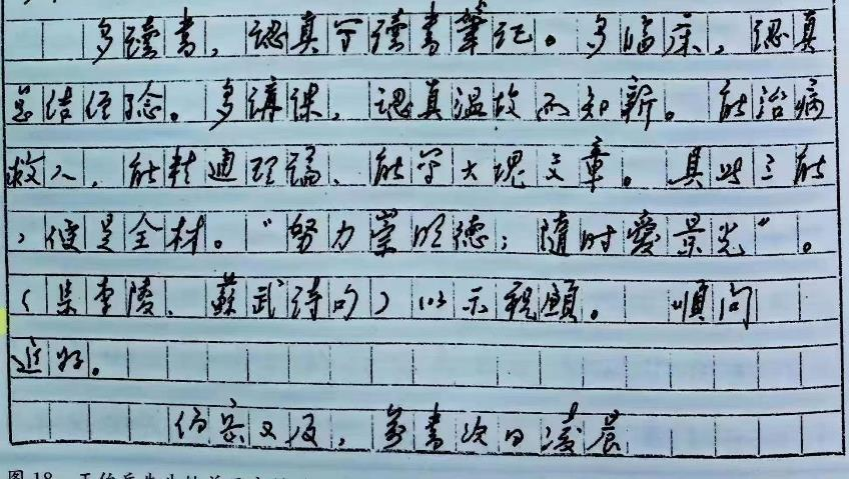 多讀書，認真写讀書筆记。多临床，認真
总结经验。多講课，認真温故而知新。能治病
救人，能精通理论，能写大塊文章。具此三能
，便是全材。“努力崇明德；隨时愛景光”。
（集李陵、蘇武诗句）以示祝願。 順问
近好。
伯岳又及，多書次日凌晨
图18